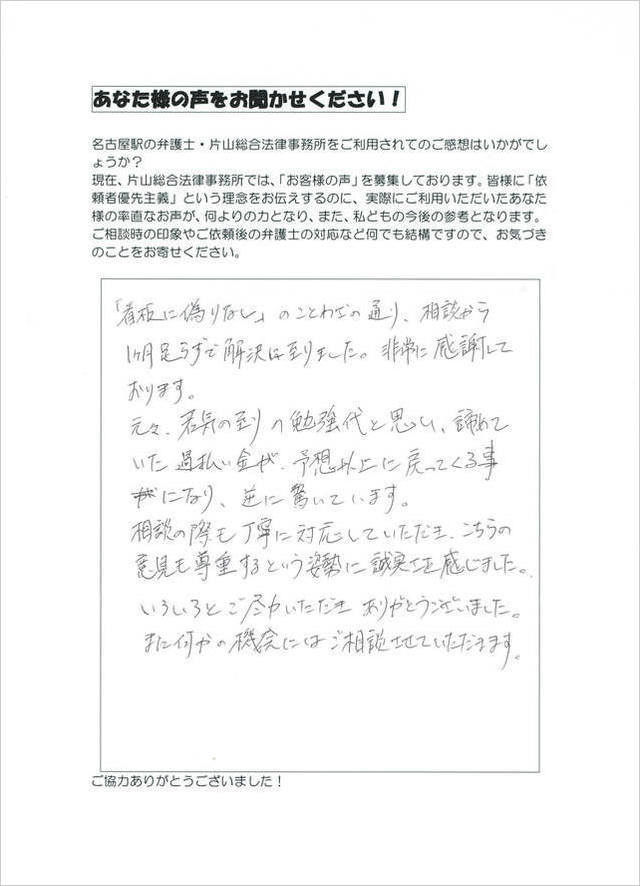 あなた様の声をお聞かせください！
名古屋駅の弁護士・片山総合法律事務所をご利用されてのご感想はいかがでし
ょうか？
現在、片山総合法律事務所では、「お客様の声」を募集しております。皆様に「依
頼者優先主義」という理念をお伝えするのに、実際にご利用いただいたあなた
様の率直なお声が、何よりの力となり、また、私どもの今後の参考となります。
ご相談時の印象やご依頼後の弁護士の対応など何でも結構ですので、お気づき
のことをお寄せください。
「看板に偽りなし」のことわざの通り、相談から
1ヶ月足らずで解決に至りました。非常に感謝して
おります。
元々、若気の至りの勉強代と思い、諦めて
いた過払い金が、予想以上に戻ってくる事
になり、逆に驚いています。
相談の際も丁寧に対応していただき、こちらの
意見も尊重するという姿勢に誠実さを感じました。
いろいろとご尽力いただき ありがとうございました。
また何かの機会にはご相談させていただきます。
ご協力ありがとうございました！